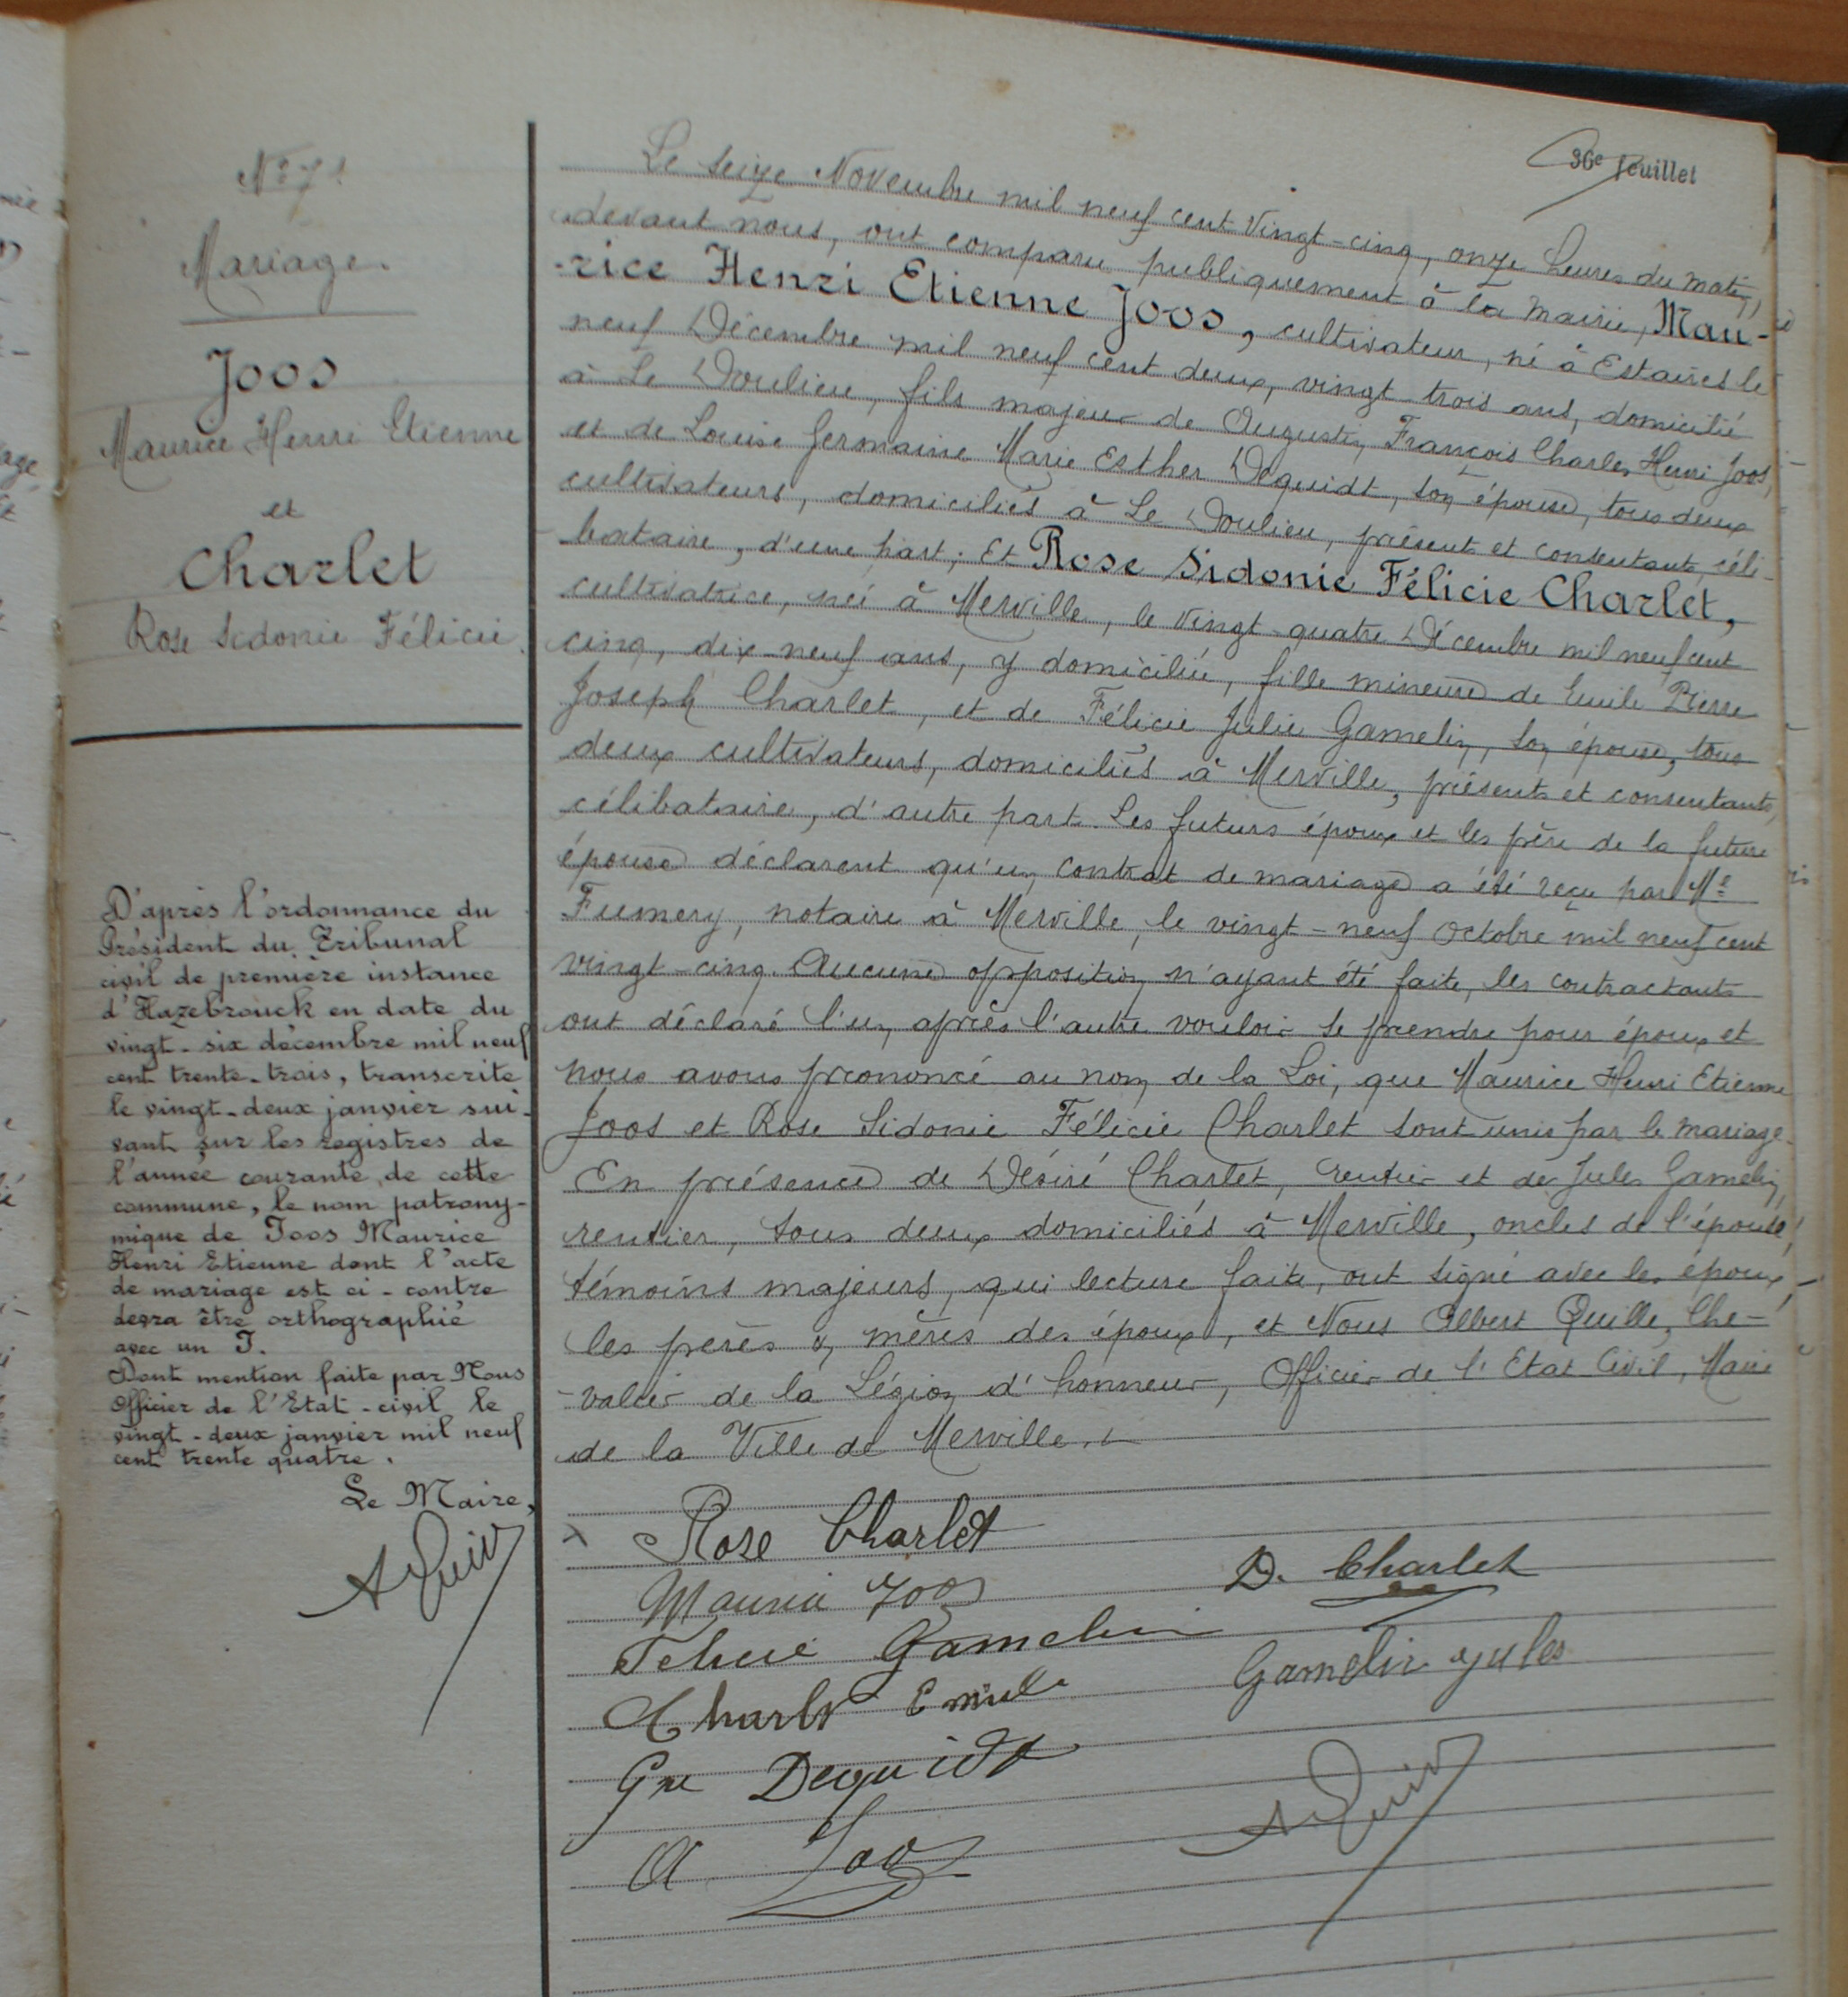 36e feuillet
Mariage.
Joos
Maurice Henri Etienne
et
Charlet
Rose Sidonie Félicie.
D'après l'ordonnance du
Président du Tribunal
civil de première instance
d'Hazebrouck en date du
vingt-six décembre mil neuf
cent trente-trois, transcrite
le vingt-deux janvier sui-
vant sur les registres de
l'année courante de cette
commune, le nom patrony-
mique de Joos Maurice
Henri Etienne dont l'acte
de mariage est ci-contre
devra être orthographié
avec un J.
Dont mention faite par Nous
Officier de l'Etat-civil le
vingt-deux janvier mil neuf
cent trente quatre.
Le Maire,
Le seize Novembre mil neuf cent vingt-cinq, onze heures du matin,
devant nous, ont comparu publiquement à la mairie, Mau-
-rice Henri Etienne Joos, cultivateur, né à Estaires le
neuf Décembre mil neuf cent deux, vingt-trois ans, domicilié
à Le Doulieu, fils majeur de Augustin François Charles Henri Joos,
et de Louise Germaine Marie Esther Dequidt, son épouse, tous deux
cultivateurs, domiciliés à Le Doulieu, présents et consentants, céli-
bataire, d'une part; Et Rose Sidonie Félicie Charlet,
cultivatrice, née à Merville, le vingt-quatre Décembre mil neuf cent
cinq, dix-neuf ans, y domiciliée, fille mineure de Emile Pierre
Joseph Charlet, et de Félicie Julie Gamelin, son épouse, tous
deux cultivateurs, domiciliés à Merville, présents et consentants,
célibataire, d'autre part. Les futurs époux et les père de la future
épouse déclarent qu'un contrat de mariage a été reçu par Me
Fumery, notaire à Merville, le vingt-neuf Octobre mil neuf cent
vingt-cinq. Aucune opposition n'ayant été faite, les contractants
ont déclaré l'un après l'autre vouloir se prendre pour époux et
nous avons prononcé au nom de la Loi, que Maurice Henri Etienne
Joos et Rose Sidonie Félicie Charlet sont unis par le mariage.
En présence de Désiré Charlet, rentier et de Jules Gamelin,
rentier, tous deux domiciliés à Merville, oncles de l'épouse,
témoins majeurs, qui lecture faite, ont signé avec les époux,
les pères &, mères des époux, et Nous Albert Quille, Che-
-valier de la Légion d'honneur, Officier de l'Etat Civil, Maire
de la Ville de Merville.
Rose Charlet
Maurice Joos
D. Charlet
Félicie Gamelin
Gamelin Jules
Charlet Emile
Gne Dequidt
A Joos